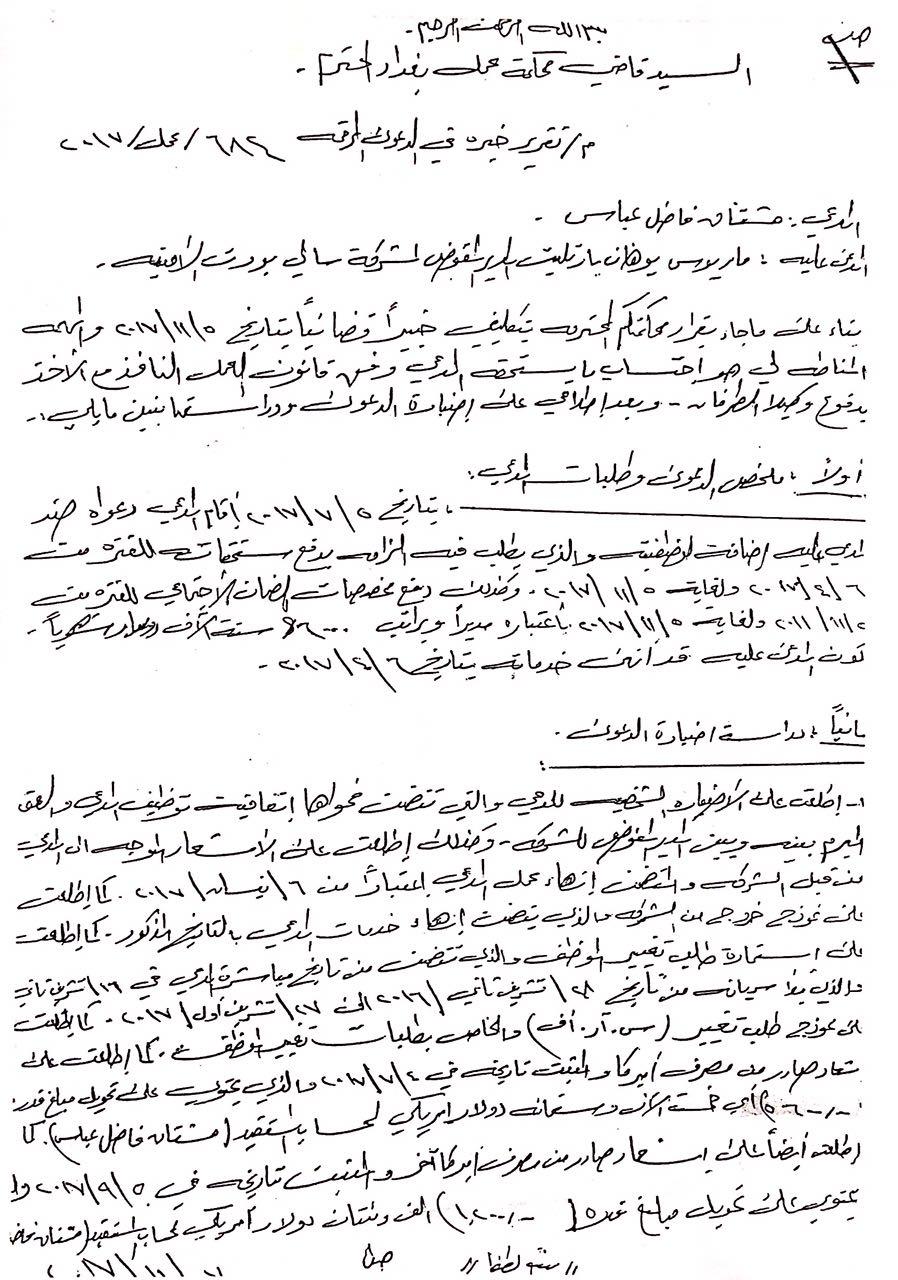 بسم الله الرحمن الرحيم
ص١
السيد قاضي محكمة عمل بغداد المحترم -
م/ تقرير خبره في الدعوى المرقمه ٦٨٢٤/عمل/٢٠١٧
المدعي : مشتاق فاضل عباس -
المدعى عليه : ماريوس يوهان المدير المفوض لشركة سالي بورت العراقيه -
بناء على ماجاء بقرار محكمتكم المحترمه بتكليفي خبيراً قضائياً بتاريخ ٢٠١٧/١١/٥ والمهمه
المناطه لي هو إحتساب ما يستحقه المدعي وفق قانون العمل النافذ مع الأخذ
بدفوع وكيلا الطرفان - وبعد إطلاعي على إضبارة الدعوى ودراستها نبين مايلي :-
أولاً : ملخص الدعوى وطلبات المدعي :
بتاريخ ٢٠١٧/٧/٥ أقام المدعي دعواه ضد
المدعى عليه إضافة لوظيفته والذي يطلب فيه الزامه بدفع مستحقاته للفتره من
٢٠١٧/٤/٦ ولغاية ٢٠١٧/١١/٥ - وكذلك دفع مخصصات الضمان الأجتماعي للفتره من
٢٠١١/١١/٢ ولغاية ٢٠١٧/١١/٥ بأعتباره مديراً وبراتب ٦٠٠٠$ ستة الآف دولار شهرياً -
كون المدعى عليه قد أنهى خدماته بتاريخ ٢٠١٧/٤/٦ -
ثانياً : دراسة اضبارة الدعوى -
١- إطلعت على الاضباره الشخصيه للمدعي والتي تتضمن فحواها إتفاقية توظيف المدعي والعقد
المبرم بينه وبين المدير المفوض للشركه - وكذلك إطلعت على الاشعار الموجه الى المدعي
من قبل الشركه والمتضمن إنهاء عمل المدعي إعتباراً من ٦/نيسان/٢٠١٧ . كما إطلعت
على نموذج خروج من الشركه والذي يتضمن إنهاء خدمات المدعي بالتاريخ المذكور - كما إطلعت
على استمارة طلب تغيير الموظف والذي تتضمن من تاريخ مباشرة المدعي في ١٦/تشرين ثاني
والذي سريانه من تاريخ ٢٨/تشرين ثاني/٢٠١٦ الى ٢٧/تشرين أول/٢٠١٧ . كما إطلعت
على نموذج طلب تغيير (س.آر.أف) والخاص بطلبات تغيير الموظف - كما إطلعت على
صادر من مصرف أمريكا والمثبت تاريخه في ٢٠١٧/٧/٤ والذي يحتوي على تحويل مبلغ قدره
(٥٦٠٠/-) أي خمسة الآف وستمائة دولار أمريكي لحساب المستفيد (مشتاق فاضل عباس) . كما
إطلعت أيضاً على إشعار صادر من مصرف أمريكا آخر والمثبت تاريخه في ٢٠١٧/٩/٥
يحتوي على تحويل مبلغ قدره (١,٢٠٠/-) الف ومئتان دولار أمريكي لحساب المستفيد (مشتاق فاضل
// يتبع لطفا //